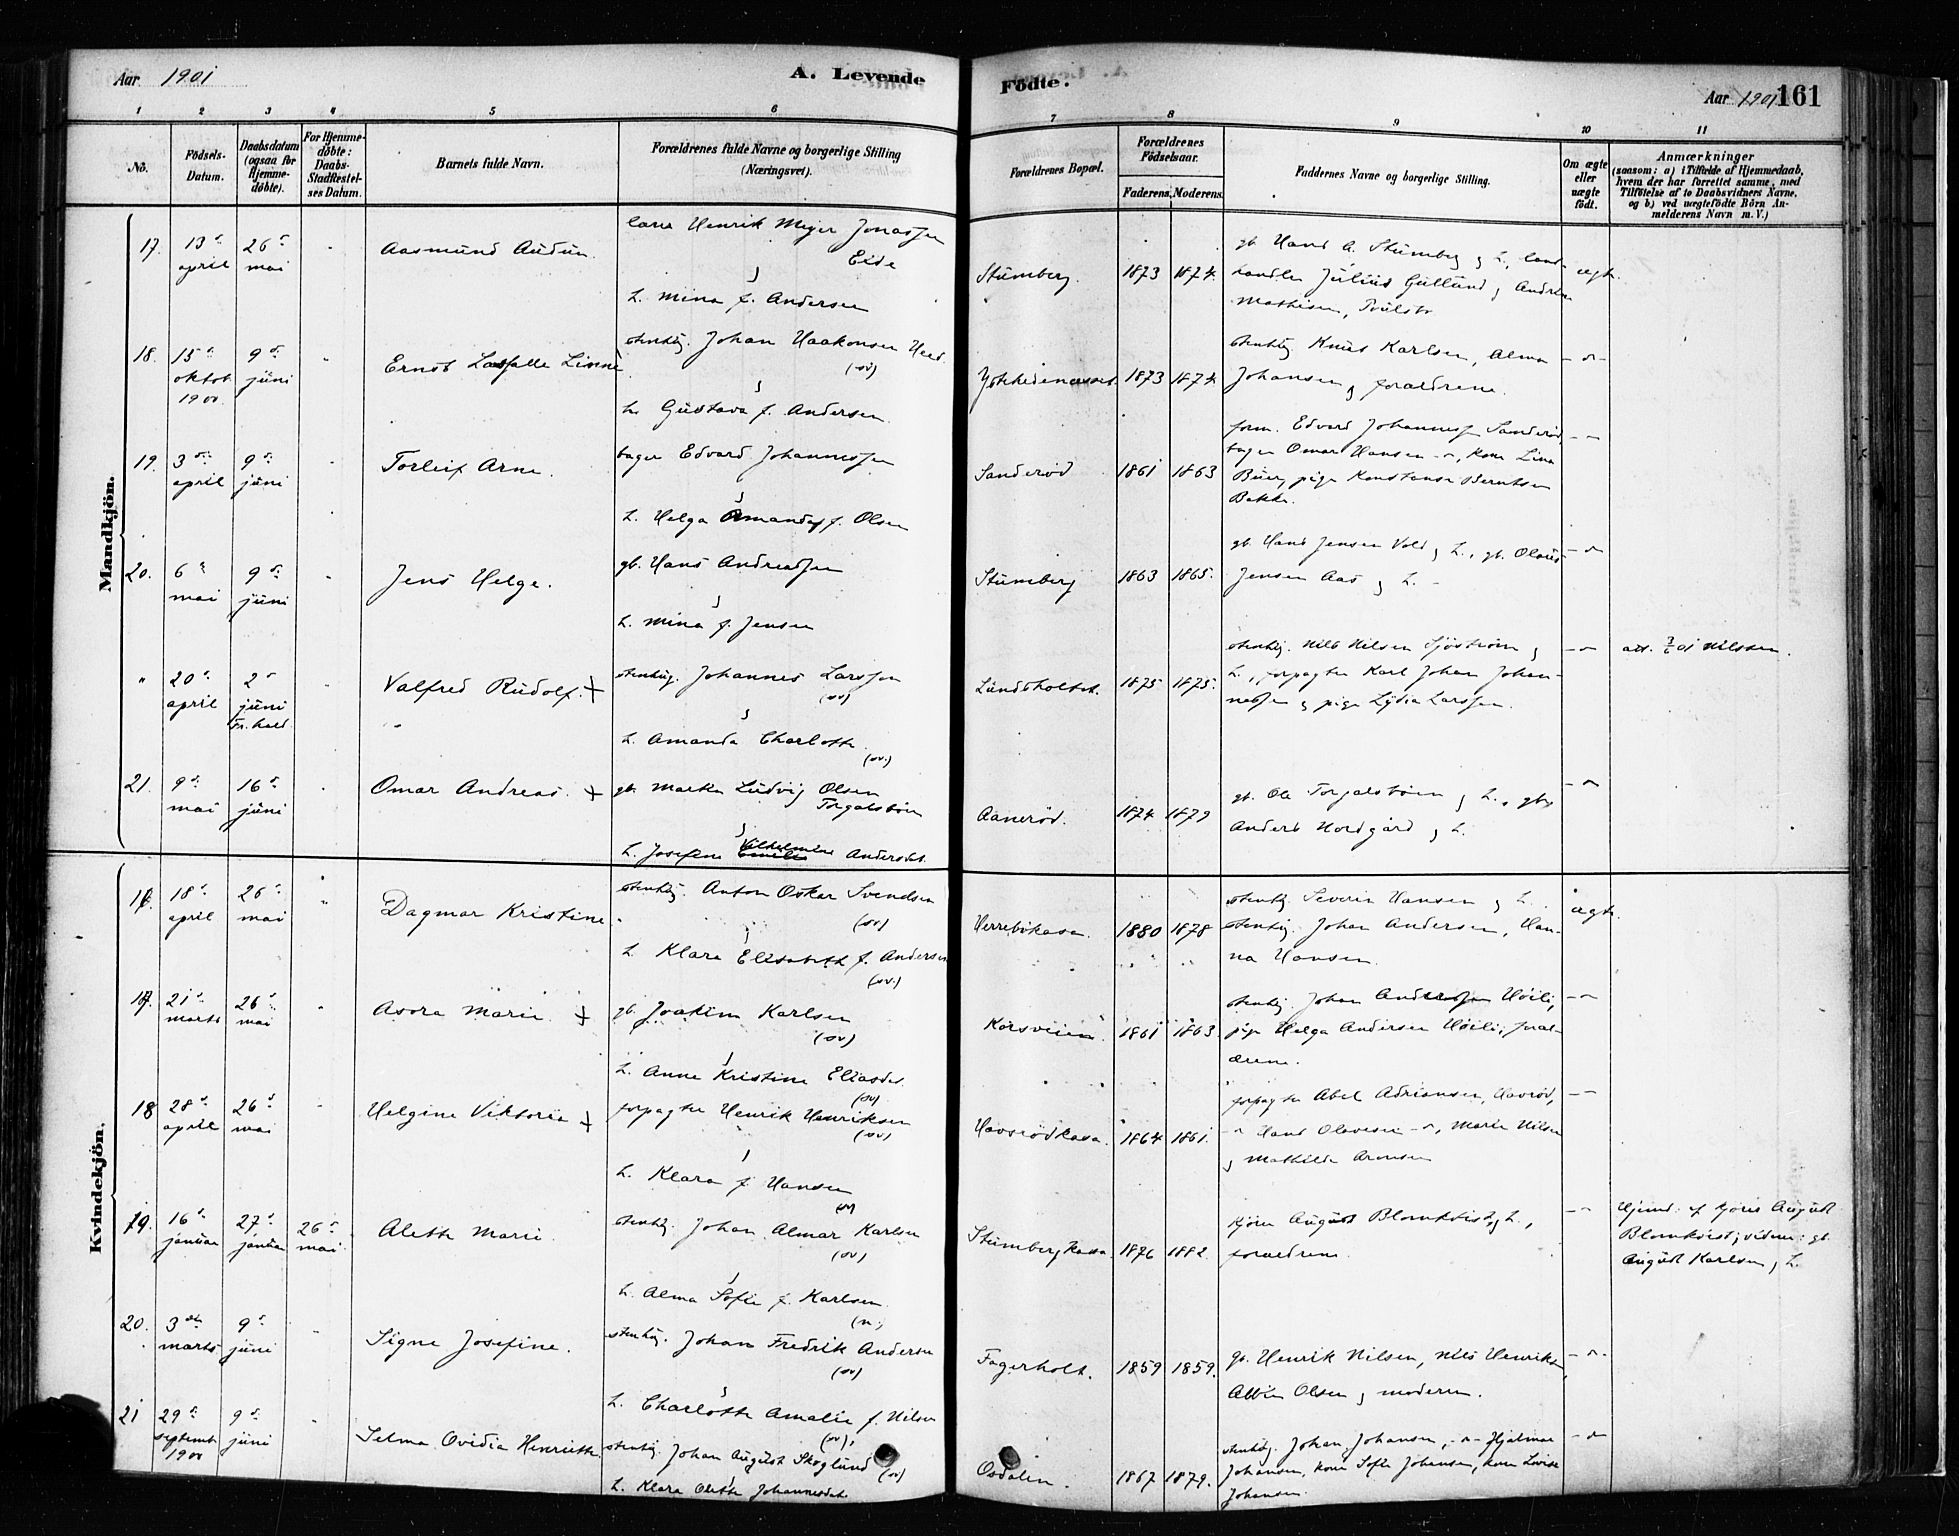 Aar 1901
A. Levende
Födte.
Aar 1901
161
1 2 3 4 5 6 7 8 9 10 11
No.
Födsels-
Datum.
Daabsdatum
(ogsaa for
Hjemme-
döbte).
For Hjemme-
döbte:
Daabs-
Stadfestel-
ses Datum.
Barnets fulde Navn.
Forældrenes fulde Navne og borgerlige Stilling
(Næringsvei).
Forældrenes Bopæl.
Forældrenes
Födselsaar.
Faderens. Moderens.
Faddernes Navne og borgerlige Stilling.
Om ægte
eller
uægte
födt.
Anmærkninger
(saasom: a) i Tilfælde af Hjemmedaab,
hvem der har forrettet samme, med
Tilföielse af to Daabsvidners Navne,
og b) ved uægtefödte Börn An-
melderens Navn m. V.)
Mandkjön.
17. 13 april 26 mai Aasmund Audun.
Henrik Meyer Jonassen
Eide
L. Mina f. Andersen
Stumberg 1873 1874
gb. Hans A. Stumberg og L., land-
handler Julius Gullund og Andrea
Mathisen, Tvilsto
ægt.
18. 15 oktob. 1900 9 juni Ernst Lassalle Linné
stenhüg. Johan Haakonsen
(sv)
L. Gustava f. Andersen
1873 1874
stenhüg. Knut Karlsen, Alma
Johansen og forældrene.
19. 3 april 9 juni Torleif Arne.
bager Edvard Johannessen
L. Helga Amanda f. Olsen
Sanderød 1861 1863
form. Edvard Johannessen Sanderød
bager Omar Hansen, kone Lina
Buer, pige Konstanse Berntsen
Bakke.
20. 6 mai 9 juni Jens Helge.
gb. Hans Andreassen
L. Mina f. Jensen
Stumberg 1863 1865.
gb. Hans Jensen Vold og L., gb. Olaus
Jensen Aas og L.
" 20 april 2 juni Fr.hald Valfred Rudolf.
stenhüg. Johannes Larssen
(sv)
L. Amanda Charlotte
(sv.)
Lundsholtet. 1875 1875.
stenhüg. Nils Nilsen Sjöström og
L., forpagter Karl Johan Johan-
nessen og pige Lydia Larssen.
att. 7/6 01 Nilssen.
21. 9 mai 16 juni Omar Andreas.
gb. Markus Ludvig Olsen
Torgalsbøen
L. Josefine Vilhelmine Andersdat.
Aanerød. 1874 1879
gb. Ole Torgalsbøen og L., gb.
Anders Nordgård og L.
Kvindekjön.
16. 18 april 26 mai Dagmar Kristine
stenhüg. Anton Oskar Svendsen
(sv)
L. Klara Elisabeth f. Andersen
(sv.)
Herrebøkasa. 1880 1878
stenhüg. Severin Hansen og L.
stenhüg. Johan Andersen, Han-
na Hansen.
ægt.
17. 21 marts 26 mai Asora Marie
gb. Joakim Karlsen
(sv)
L. Anne Kristine Eliasdat.
(sv)
Korsveien 1861 1863
stenhüg. Johan Anderssen Høili,
pige Helga Andersen Høili, foræl-
drene.
18 28 april 26 mai Helgine Viktoria
forpagter Henrik Henriksen
(sv)
L. Klara f. Hansen
(sv)
Havsrødkasa. 1864 1861.
forpagter Abel Adriansen, Havsrød,
Hans Olavesen, Marie Nilsen
og Mathilde Aronsen
19. 16 januar 27 januar 26 mai Alette Marie
stenhüg. Johan Almar Karlsen
(sv)
L. Alma Sofie f. Karlsen
(n.)
Stumbergkasa 1876 1882.
kjører August Blomkvist og L.,
forældrene.
Hjemd. af kjører August
Blomkvist; vidner: gb.
August Karlsen og L.
20. 3 marts 9 juni Signe Josefine.
stenhüg. Johan Fredrik Andersen
(sv)
L. Charlotte Amalie f. Nilsen
(sv)
Fagerholt. 1859 1859.
gb. Henrik Nilsen, Nils Henriksen,
Albin Olsen og moderen.
21 29 septemb. 1900 9 juni Selma Ovidia Henriette
stenhüg. Johan August Skoglund (sv)
L. Klara Olette Johannesdat.
Osdalen 1867 1879.
stenhüg. Johan Johansen, Hjalmar
Johansen, kone Sofie Johansen, kone Lovise
Johansen.